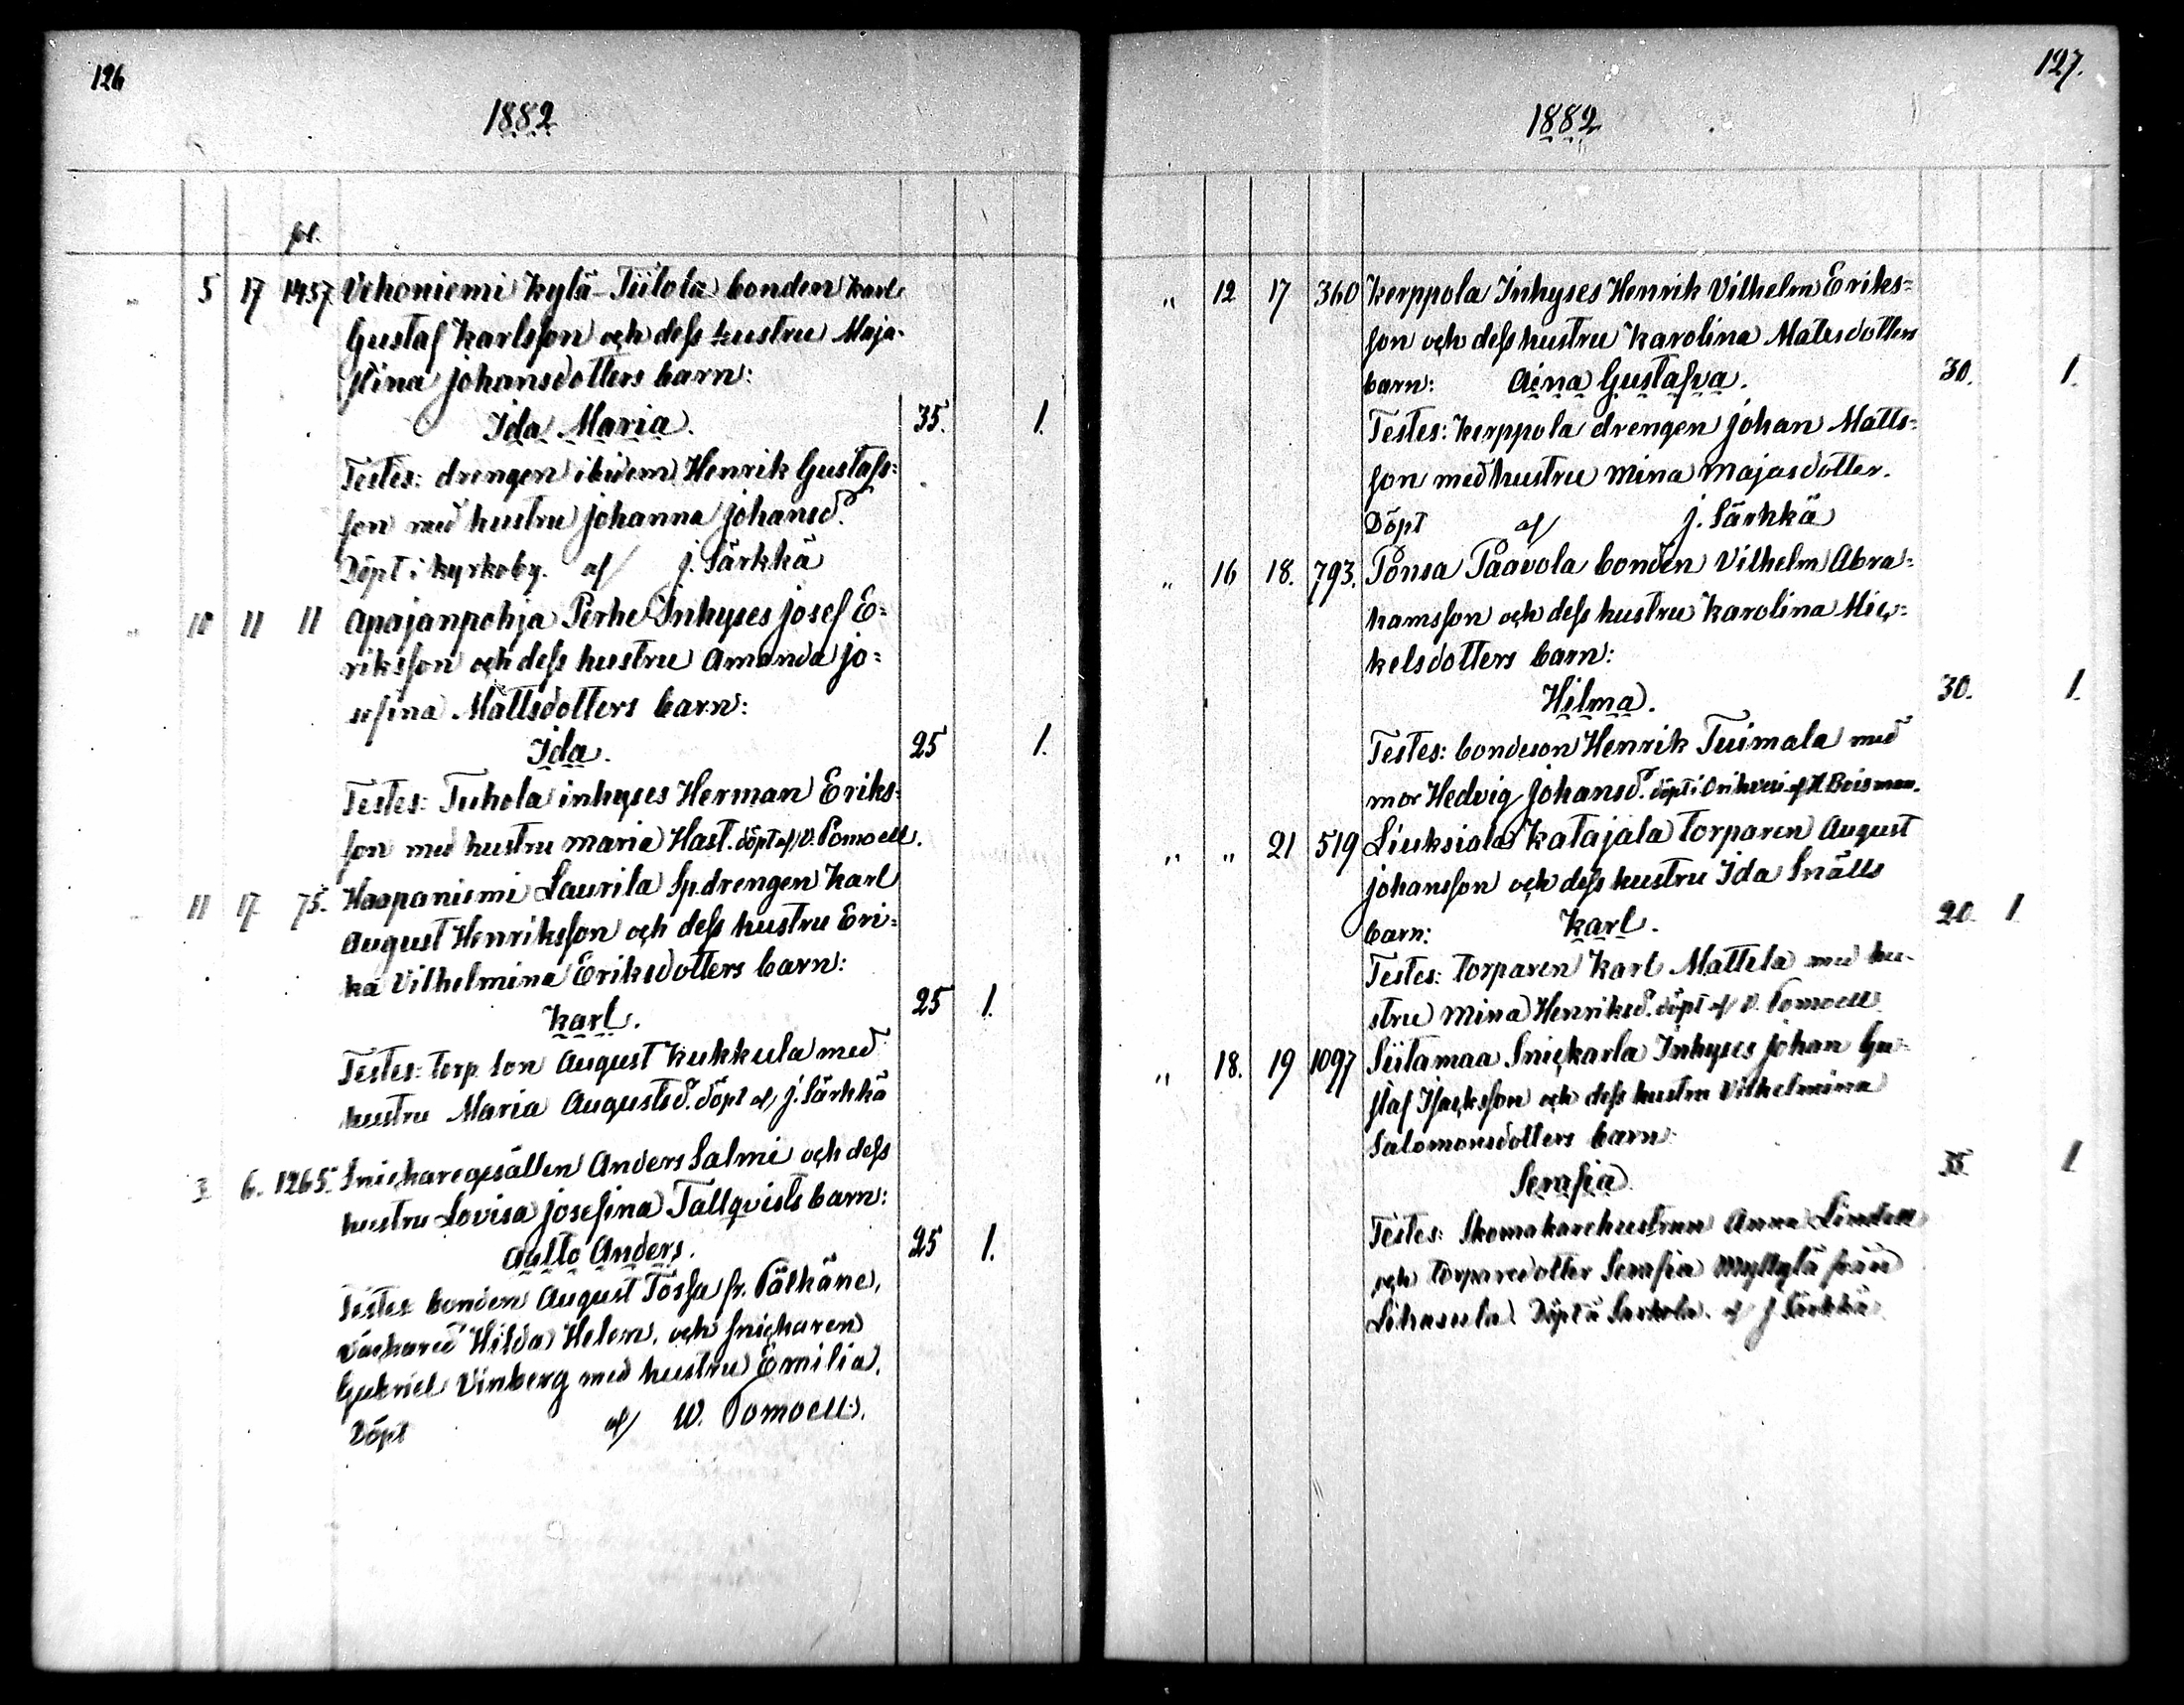 126
1882
fol.
" 5 17 1457 Vehoniemi Kylä-Tiilola bonden Karl
Gustaf Karlsson och dess hustru Maja
Stina Johansdotters barn:
Ida Maria. 35. 1.
Testes: drengen ibidem Henrik Gustafs-
son med hustru Johanna Johansd.
Döpt i kyrkoby. af J. Särkkä
" 10 11 11 Apajanpohja Perhe Inhyses Josef E-
riksson och dess hustru Amanda Jo-
sefina Mattsdotters barn:
Ida. 25 1.
Testes: Tuhola inhyses Herman Eriks-
son med hustru Maria Hast. döpt af V. Pomoell.
11 17. 75. Haapaniemi Laurila Sp.drengen Karl
August Henriksson och dess hustru Eri-
ka Vilhelmina Eriksdotters barn:
Karl. 25 1.
Testes: torp. son August Kukkula med
hustru Maria Augustsd. döpt af J. Särkkä
3 6. 1265. Snickaregesällen Anders Salmi och dess
hustru Lovisa Josefina Tallqvists barn:
Anders. 25 1.
Testes bonden August Tossa fr. Pälkäne,
Hilda Helen, och snickaren
Gabriel Vinberg med hustru Emilia.
Döpt af W. Pomoell.
127.
1882
" 12 17 360 Kerppola Inhyses Henrik Vilhelm Eriks-
son och dess hustru Karolina Matsdotters
barn: Aina Gustafva. 30. 1.
Testes: Kerppola drengen Johan Matts-
son med hustru Mina Majasdotter.
Döpt af J. Särkkä
" 16 18. 793. Ponsa Paavola bonden Vilhelm Abra-
hamsson och dess hustru Karolina Mic-
kelsdotters barn:
Hilma. 30. 1.
Testes: bondeson Henrik Tuimala med
mor Hedvig Johansd. döpt i Orihvesi af K Boisman.
" " 21 519 Liuksiala Katajala torparen August
Johansson och dess hustru Ida Snälls
barn: Karl. 20. 1
Testes: torparen Karl Mattila med hu-
stru Mina Henriksd. döpt af V. Pomoell
" 18. 19 1097 Siitamaa Snickarla Inhyses Johan Gu-
staf Isacksson och dess hustru Vilhelmina
Salomonsdotters barn:
Serafia 35. 1
Testes: Skomakarehustrun Anna Lindell
och torparedotter Serafia Myllylä från
Lihasula. Döpt af J Särkkä.